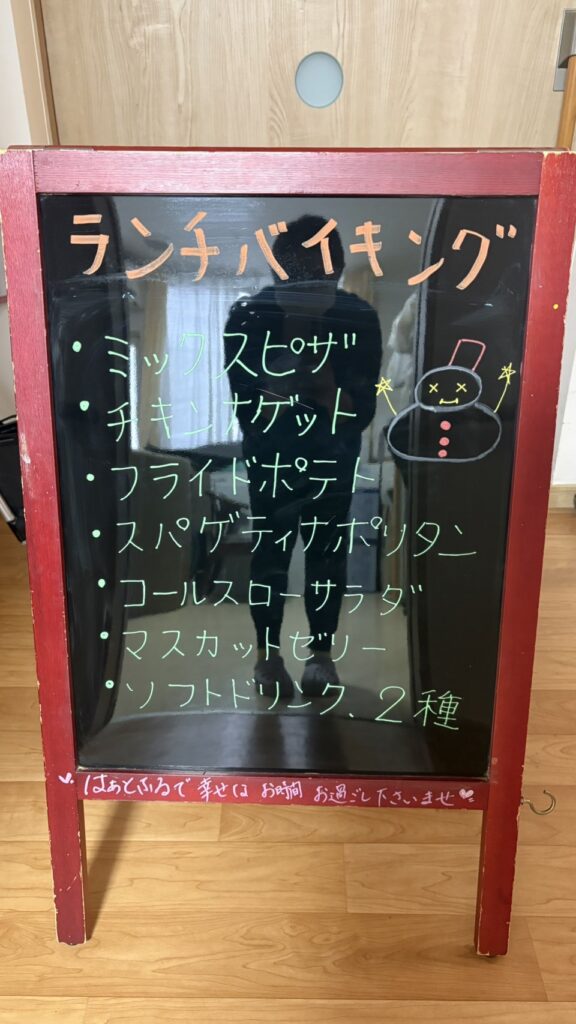 ランチバイキング
・ミックスピザ
・チキンナゲット
・フライドポテト
・スパゲティナポリタン
・コールスローサラダ
・マスカットゼリー
・ソフトドリンク、2種
はぁとふるで幸せなお時間お過ごし下さいませ